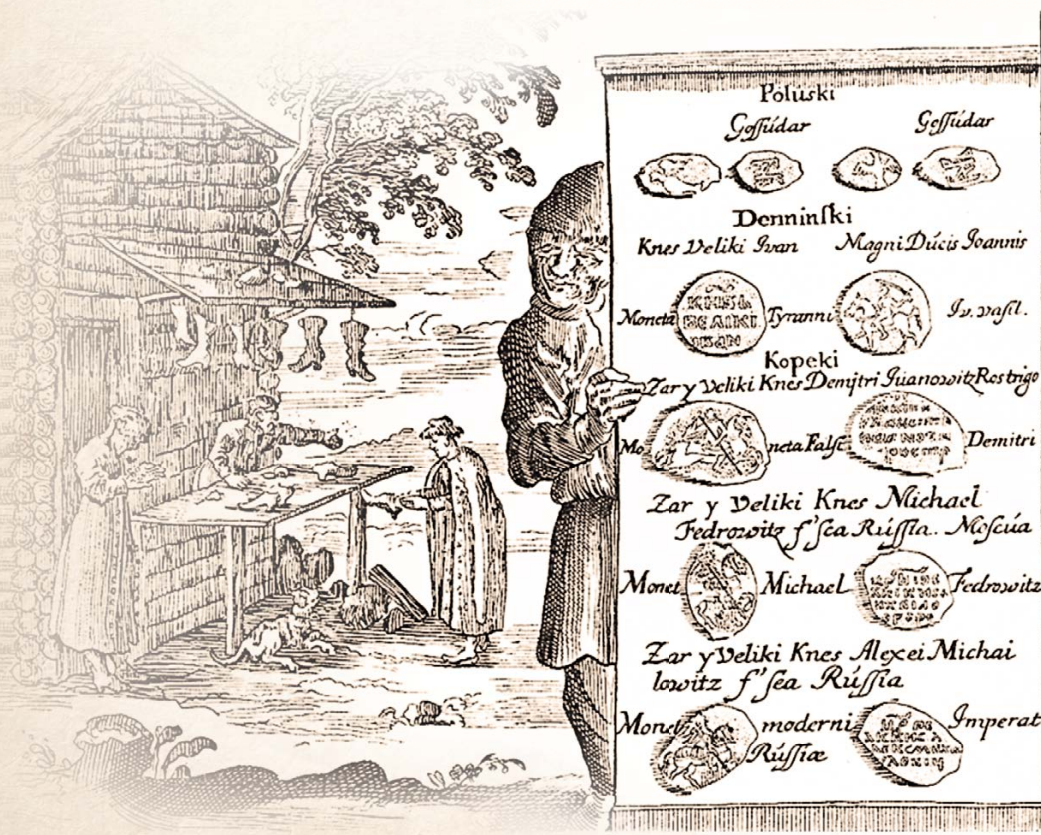 Poluski
Gossudar Gossudar
Denninski
Knes Veliki Ivan Magni Ducis Joannis
Moneta КНЯЗЬ ВЕЛІКІ ІВАН Tyranni Iv. vasil.
Kopeki
Zar y Veliki Knes Demitri Iuanowitz Rostrigo
Mo neta False Demitri
Zar y Veliki Knes Michael
Fedrowitz f'sea Russia. Moscua
Monet Michael Fedrowitz
Zar y Veliki Knes Alexei Michai
lowitz f'sea Russia
Monet moderni Imperat
Russiæ